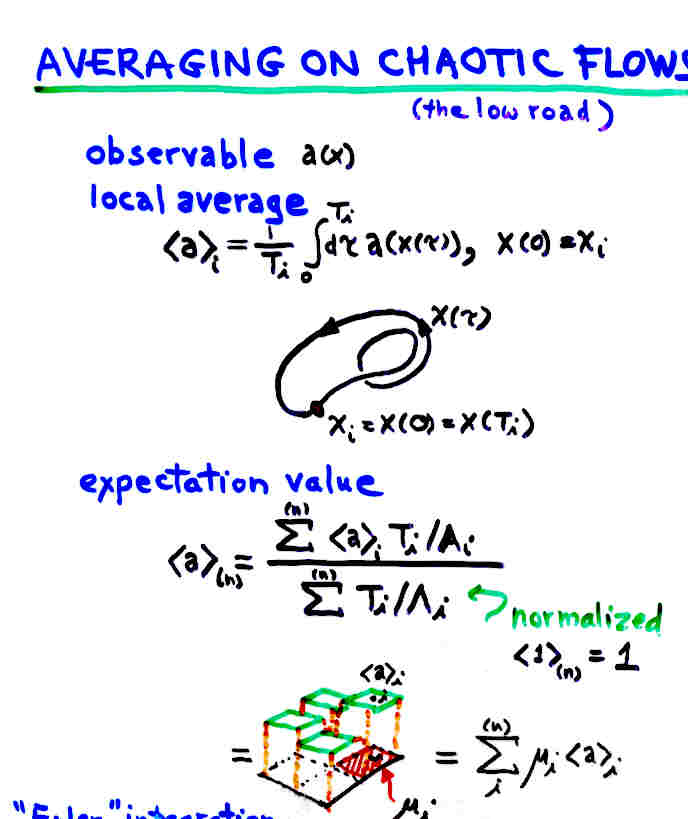 AVERAGING ON CHAOTIC FLOWS
(the low road)
observable a(x)
local average
<a>ᵢ = 1/Tᵢ ∫₀^Tᵢ dτ a(x(τ)), x(0) = xᵢ
x(τ)
xᵢ = x(0) = x(Tᵢ)
expectation value
<a>₍ₙ₎ = Σ⁽ⁿ⁾ <a>ᵢ Tᵢ/Λᵢ / Σ⁽ⁿ⁾ Tᵢ/Λᵢ
normalized
<1>₍ₙ₎ = 1
<a>ᵢ
= = Σᵢ⁽ⁿ⁾ μᵢ <a>ᵢ
μᵢ
"Euler" integration